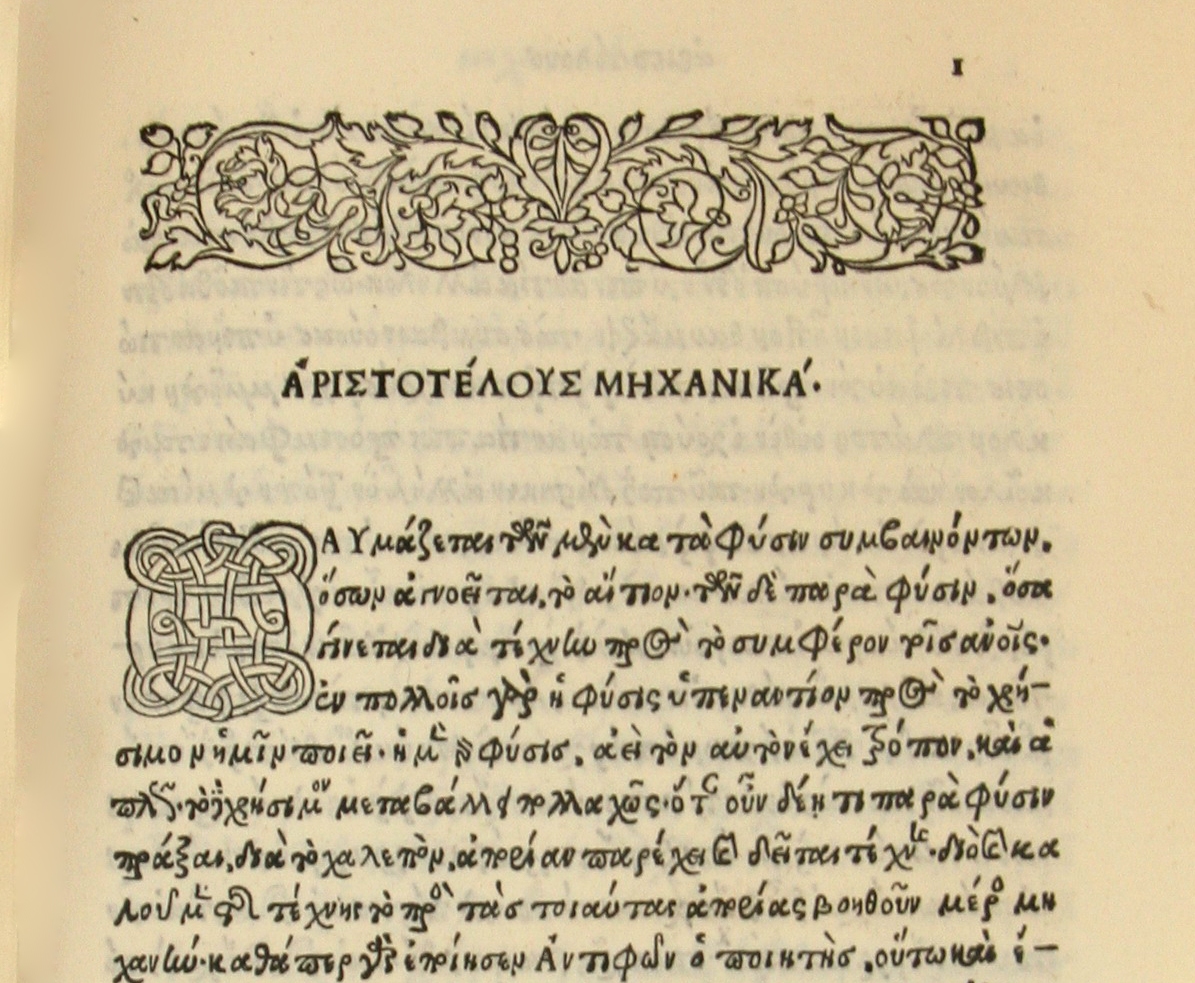 I
ἈΡΙΣΤΟΤΈΛΟΥΣ ΜΗΧΑΝΙΚΆ.
ΑΥμάζεται τῶν μὲν κατὰ φύσιν συμβαινόντων,
ὅσων ἀγνοεῖται, τὸ αἴτιον· τῶν δὲ παρὰ φύσιν, ὅσα
γίνεται διὰ τέχνην πρὸς τὸ συμφέρον τοῖς ἀνοῖς·
ἐν πολλοῖς γὰρ ἡ φύσις ὑπεναντίον πρὸς τὸ χρή-
σιμον ἡμῖν ποιεῖ· ἡ μὲν γὰρ φύσις, ἀεὶ τὸν αὐτὸν ἔχει τρόπον, καὶ ἁ
πλῶς· τὸ δὲ χρήσιμον μεταβάλλει πολλαχῶς· ὅταν οὖν δέῃ τι παρὰ φύσιν
πρᾶξαι, διὰ τὸ χαλεπὸν, ἀπορίαν παρέχει καὶ δεῖται τέχνης· διὸ καὶ κα
λοῦμεν τῆς τέχνης τὸ πρὸς τὰς τοιαύτας ἀπορίας βοηθοῦν μέρος μη
χανήν· καθάπερ γὰρ ἐποίησεν Ἀντιφῶν ὁ ποιητὴς, οὕτω καὶ ἔ-